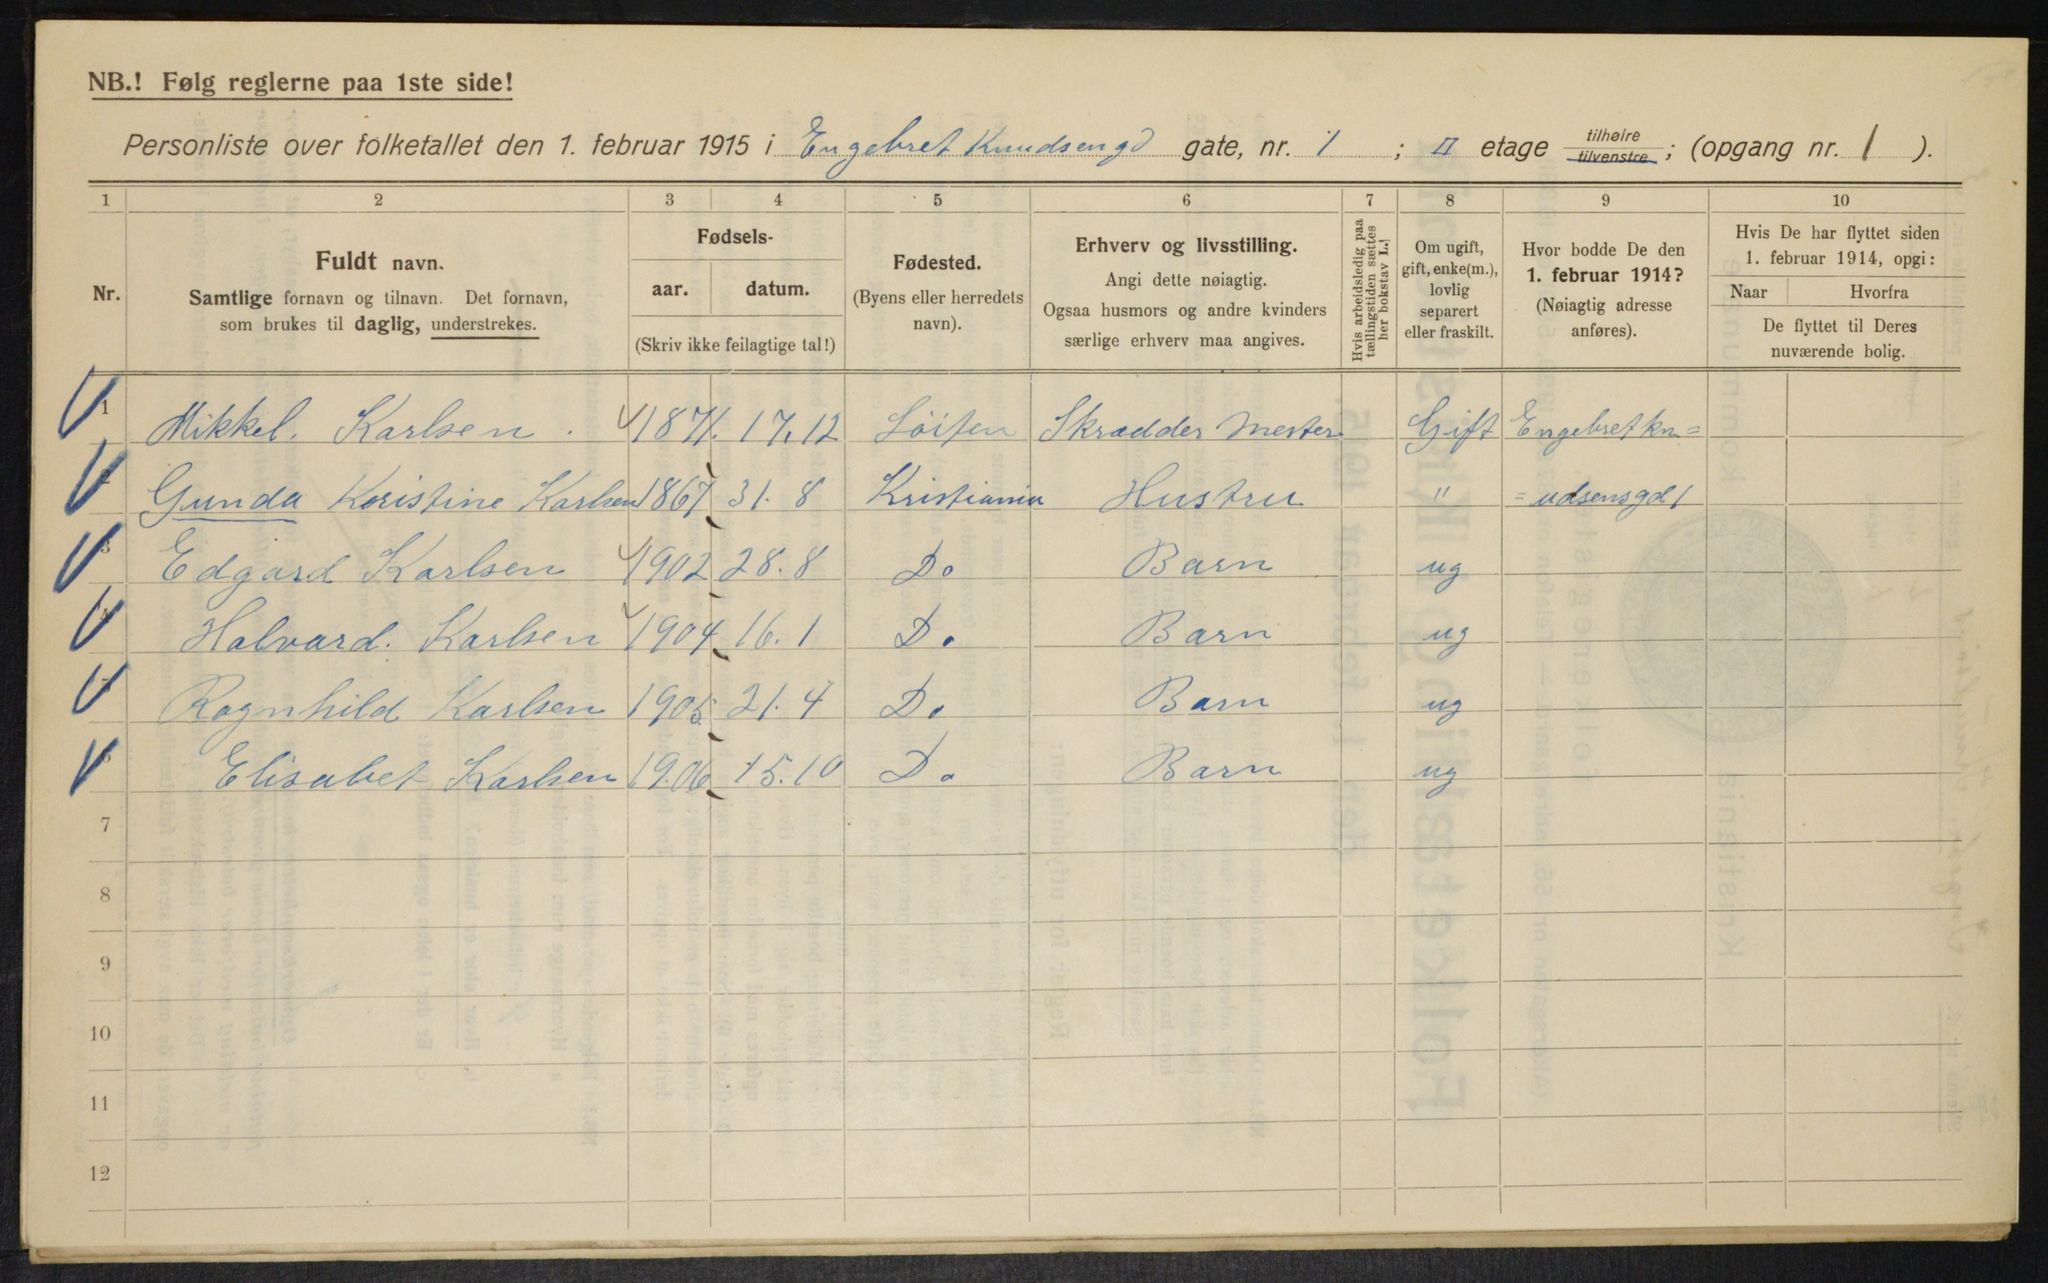 NB.! Følg reglerne paa 1ste side!
Personliste over folketallet den 1. februar 1915 i Engebret Knudsengd gate, nr. 1 ; II etage tilhøire tilvenstre ; (opgang nr. 1 ).
1 2 3 4 5 6 7 8 9 10
Nr.
Fuldt navn.
Samtlige fornavn og tilnavn. Det fornavn,
som brukes til daglig, understrekes.
Fødsels-
aar. datum.
(Skriv ikke feilagtige tal!)
Fødested.
(Byens eller herredets
navn).
Erhverv og livsstilling.
Angi dette nøiagtig.
Ogsaa husmors og andre kvinders
særlige erhverv maa angives.
Hvis arbeidsledig paa
tællingstiden sættes
her bokstav L.!
Om ugift,
gift, enke(m.),
lovlig
separert
eller fraskilt.
Hvor bodde De den
1. februar 1914?
(Nøiagtig adresse
anføres).
Hvis De har flyttet siden
1. februar 1914, opgi:
Naar Hvorfra
De flyttet til Deres
nuværende bolig.
1 Mikkel. Karlsen. 1871. 17.12 Löiten Skrædder Mester Gift Engebret kn=
2 Gunda Kristine Karlsen 1867 31.8 Kristiania Hustru " =udsensgd 1
3 Edgard Karlsen 1902 28.8 Do Barn ug
4 Halvard. Karlsen 1904 16.1 Do Barn ug
5 Ragnhild Karlsen 1905. 21.4 Do Barn ug
6 Elisabet Karlsen 1906 15.10 Do Barn ug
7
8
9
10
11
12